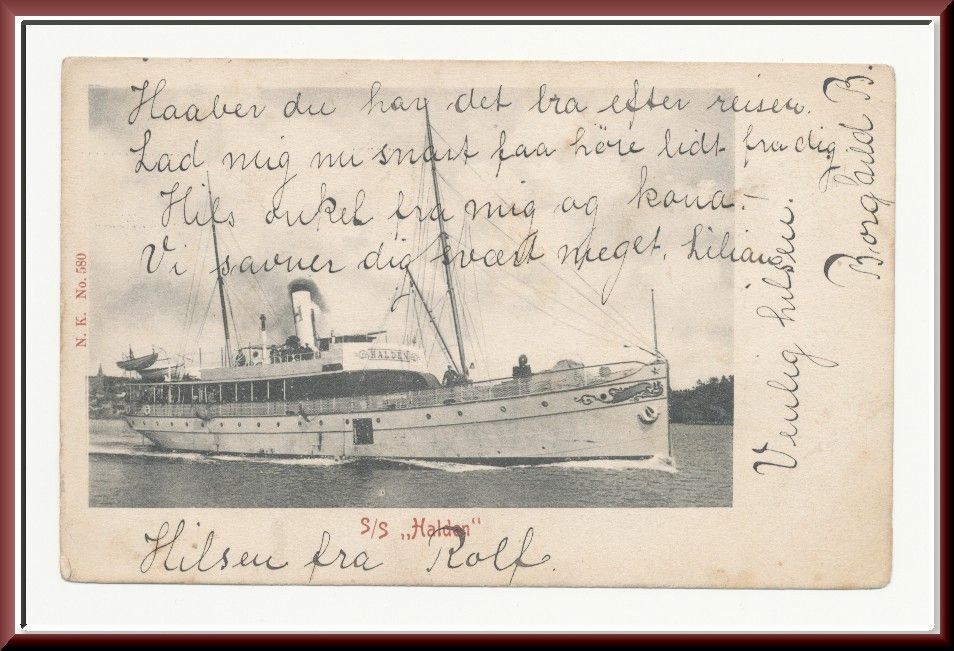 Haaber du har det bra efter reisen.
Lad mig nu snart faa höre lidt fra dig
Hils onkel fra mig og kona!
Vi savner dig svært meget. Lilian
Venlig hilsen.
Borghild B.
N. K. No. 580
HALDEN
S/S „Halden"
Hilsen fra Rolf.